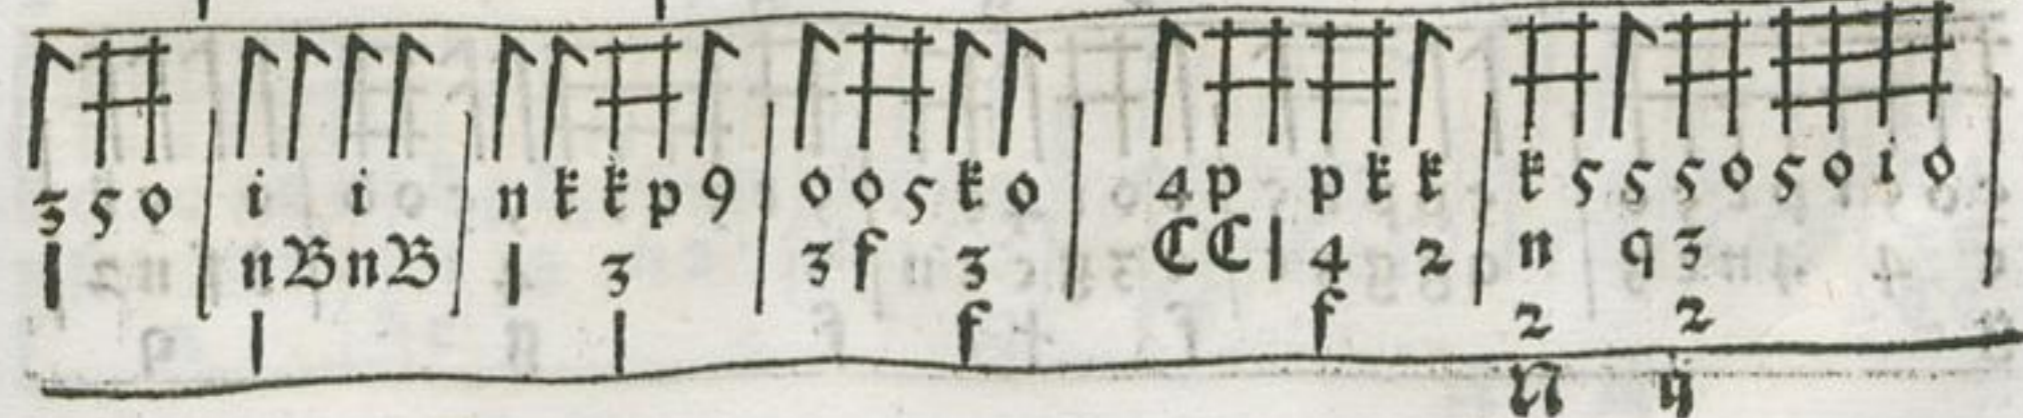 3 5 o | i i | n k k p 9 | o o 5 k o | 4 p p k k | k 5 5 5 o 5 o i o |
| n B n B | 3 3 f 3 C C | 4 2 n q 3
| | f f 2 2
N